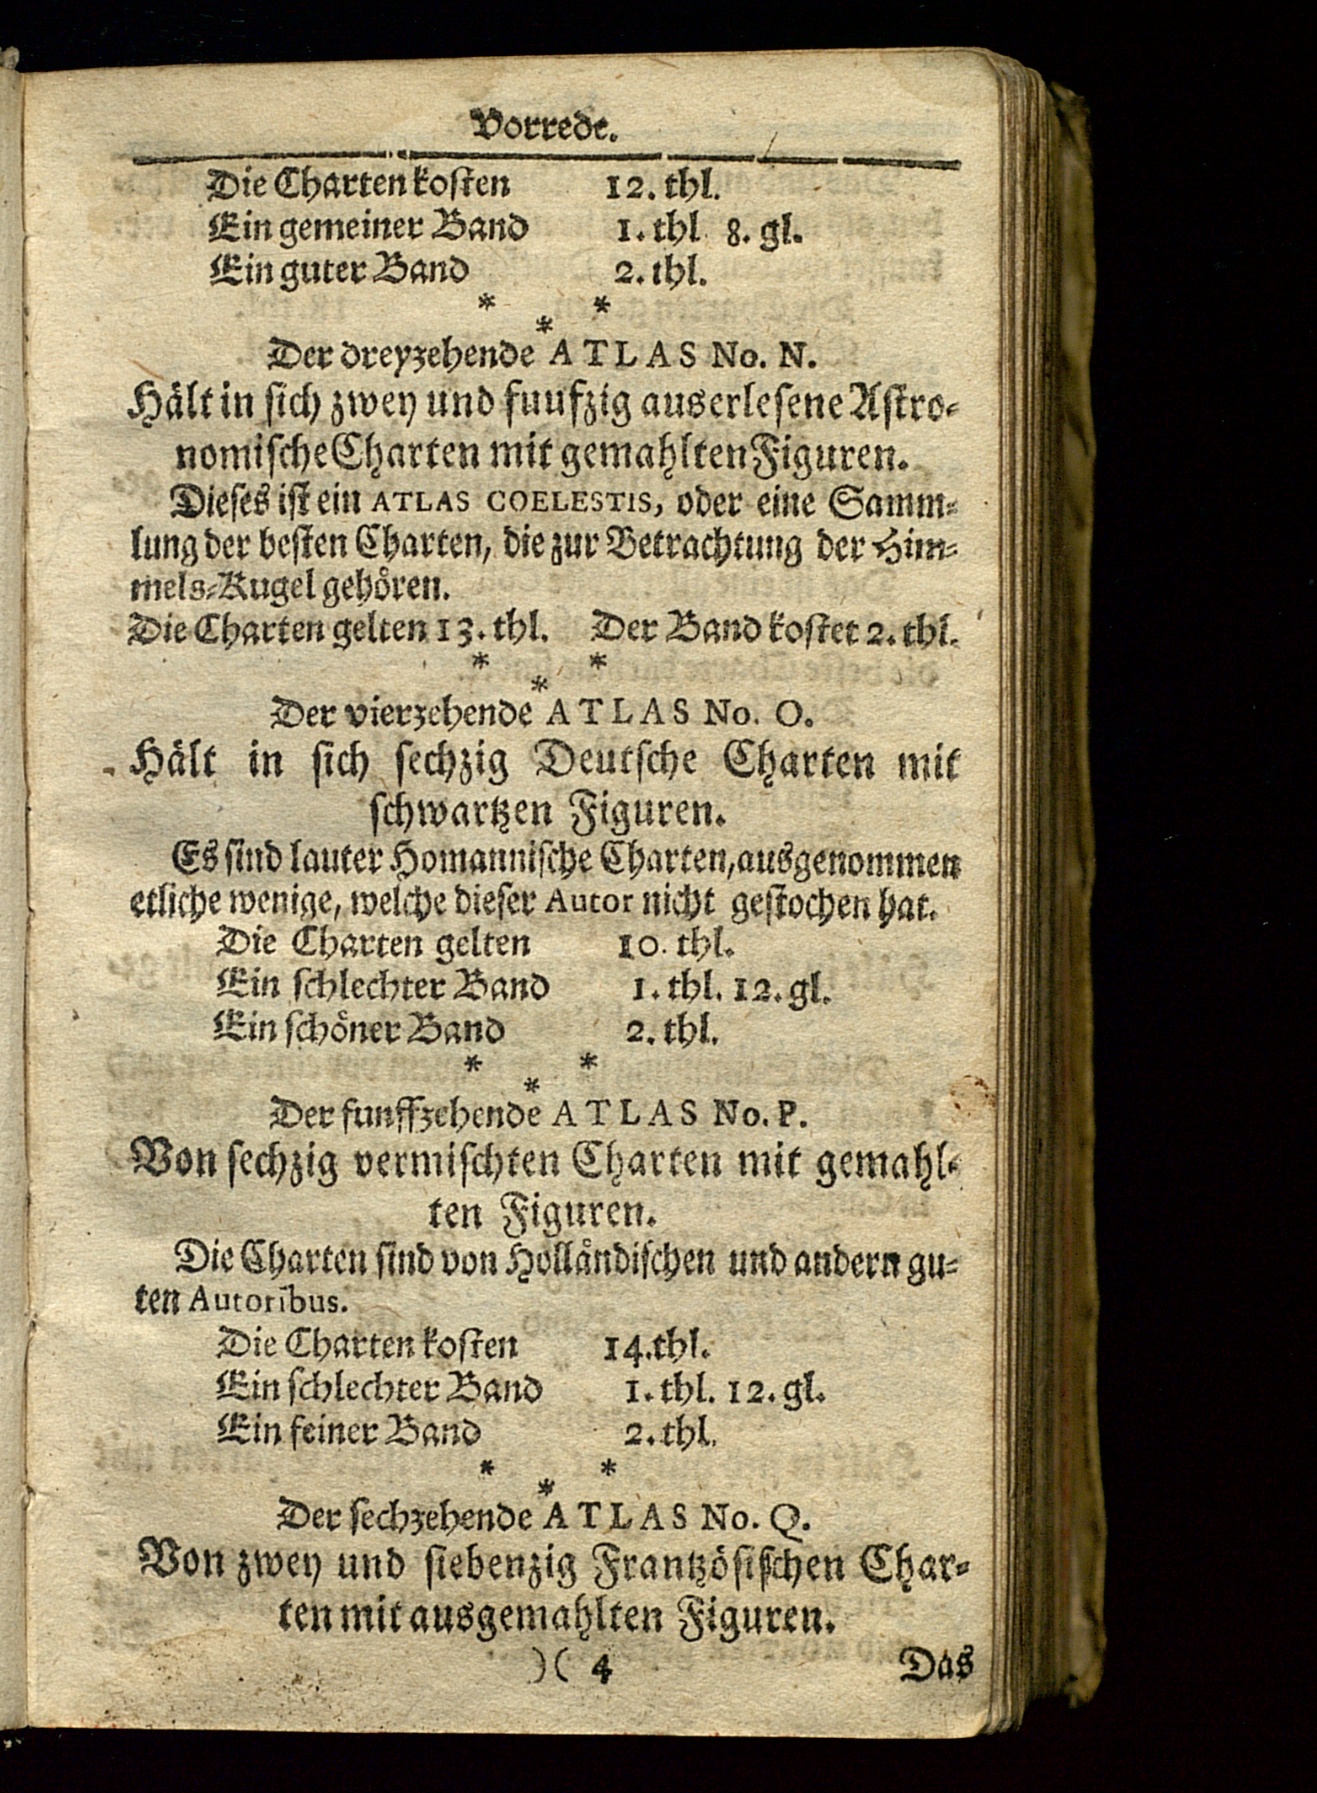 Vorrede.
Die Charten kosten 12. thl.
Ein gemeiner Band 1. thl 8. gl.
Ein guter Band 2. thl.
* * *
Der dreyzehende ATLAS No. N.
Hält in sich zwey und fuufzig auserlesene Astro-
nomische Charten mit gemahlten Figuren.
Dieses ist ein ATLAS COELESTIS, oder eine Samm-
lung der besten Charten, die zur Betrachtung der Him-
mels-Kugel gehören.
Die Charten gelten 13. thl. Der Band kostet 2. thl.
* * *
Der vierzehende ATLAS No. O.
Hält in sich sechzig Deutsche Charten mit
schwartzen Figuren.
Es sind lauter Homannische Charten, ausgenommen
etliche wenige, welche dieser Autor nicht gestochen hat.
Die Charten gelten 10. thl.
Ein schlechter Band 1. thl. 12. gl.
Ein schöner Band 2. thl.
* * *
Der funffzehende ATLAS No. P.
Von sechzig vermischten Charten mit gemahl-
ten Figuren.
Die Charten sind von Holländischen und andern gu-
ten Autoribus.
Die Charten kosten 14. thl.
Ein schlechter Band 1. thl. 12. gl.
Ein feiner Band 2. thl.
* * *
Der sechzehende ATLAS No. Q.
Von zwey und siebenzig Frantzösischen Char-
ten mit ausgemahlten Figuren.
)( 4 Das